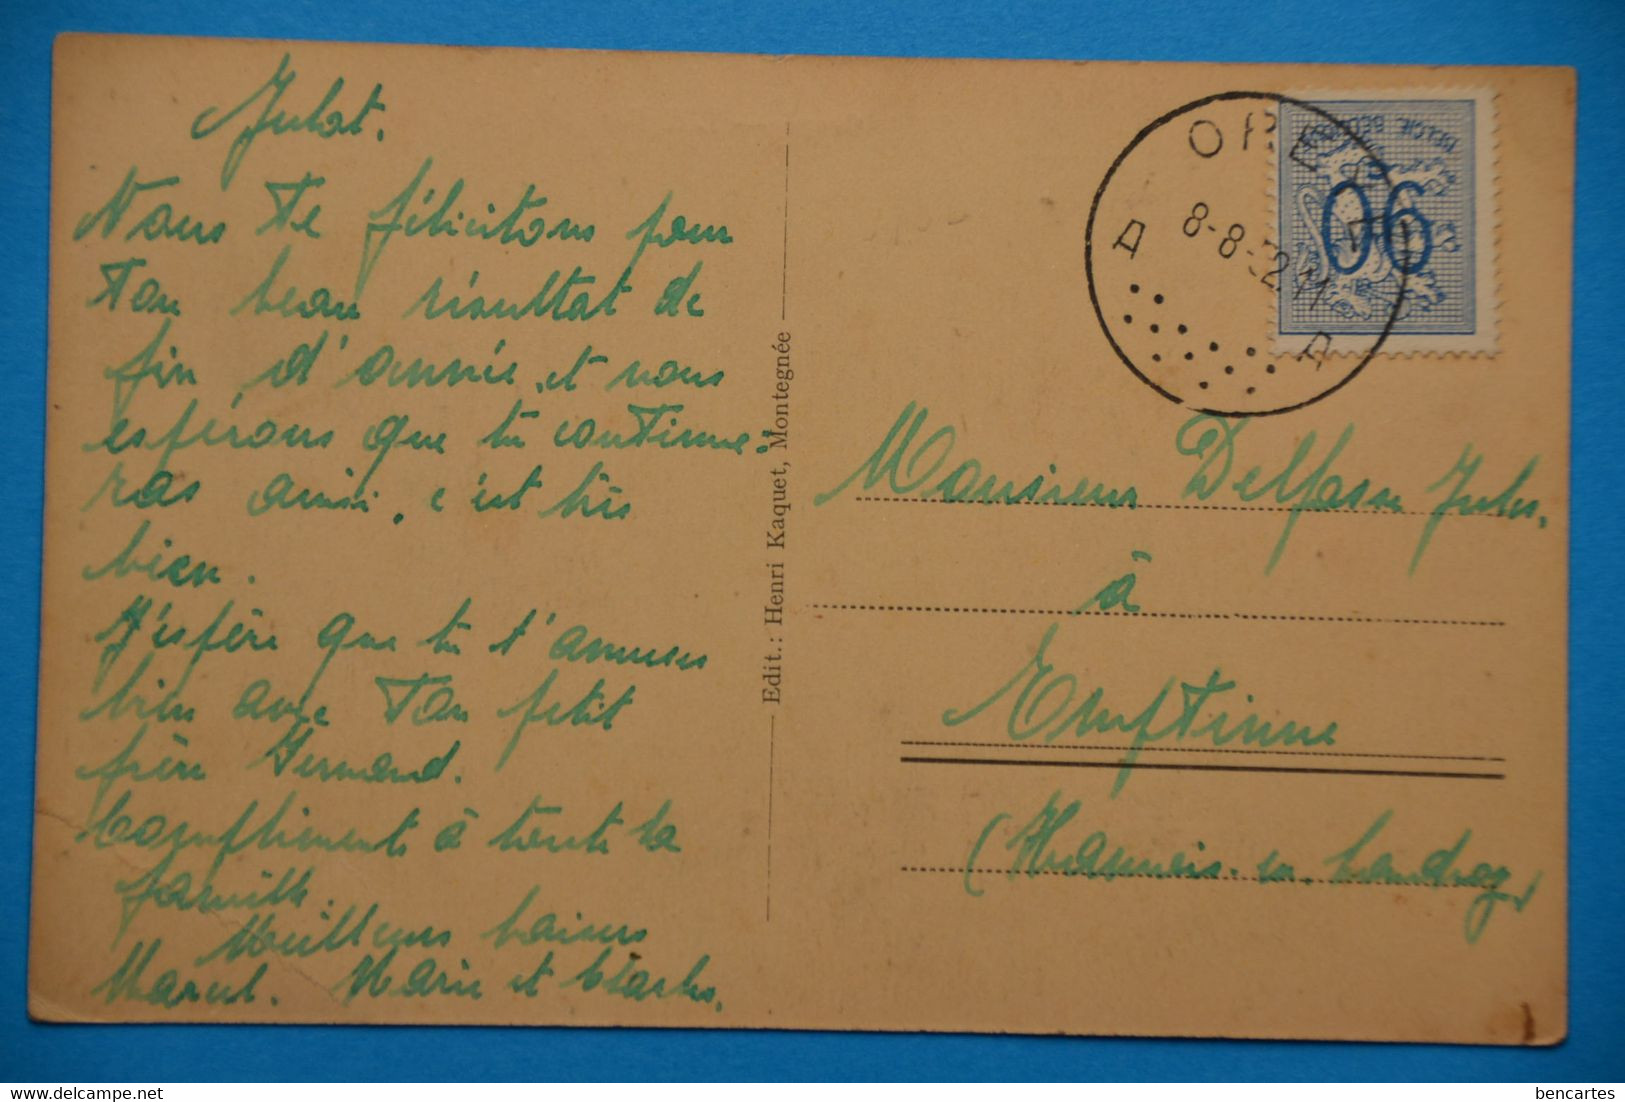 Julot.
Nous Te félicitons pour
Ton beau résultat de
fin d'année, et nous
espérons que tu continue-
ras ainsi, c'est très
bien.
J'espère que tu t'amuses
bien avec Ton petit
frère Fernand.
Compliments à toute la
famille.
Meilleurs baisers
Marcel. Marie et Charles.
Edit.: Henri Kaquet, Montegnée
OREYE
A A
8-8-52 11
BELGIE BELGIQUE
06
Monsieur Delfosse Jules.
à
Emptinne
(Hamois-en-Condroz)
bencartes